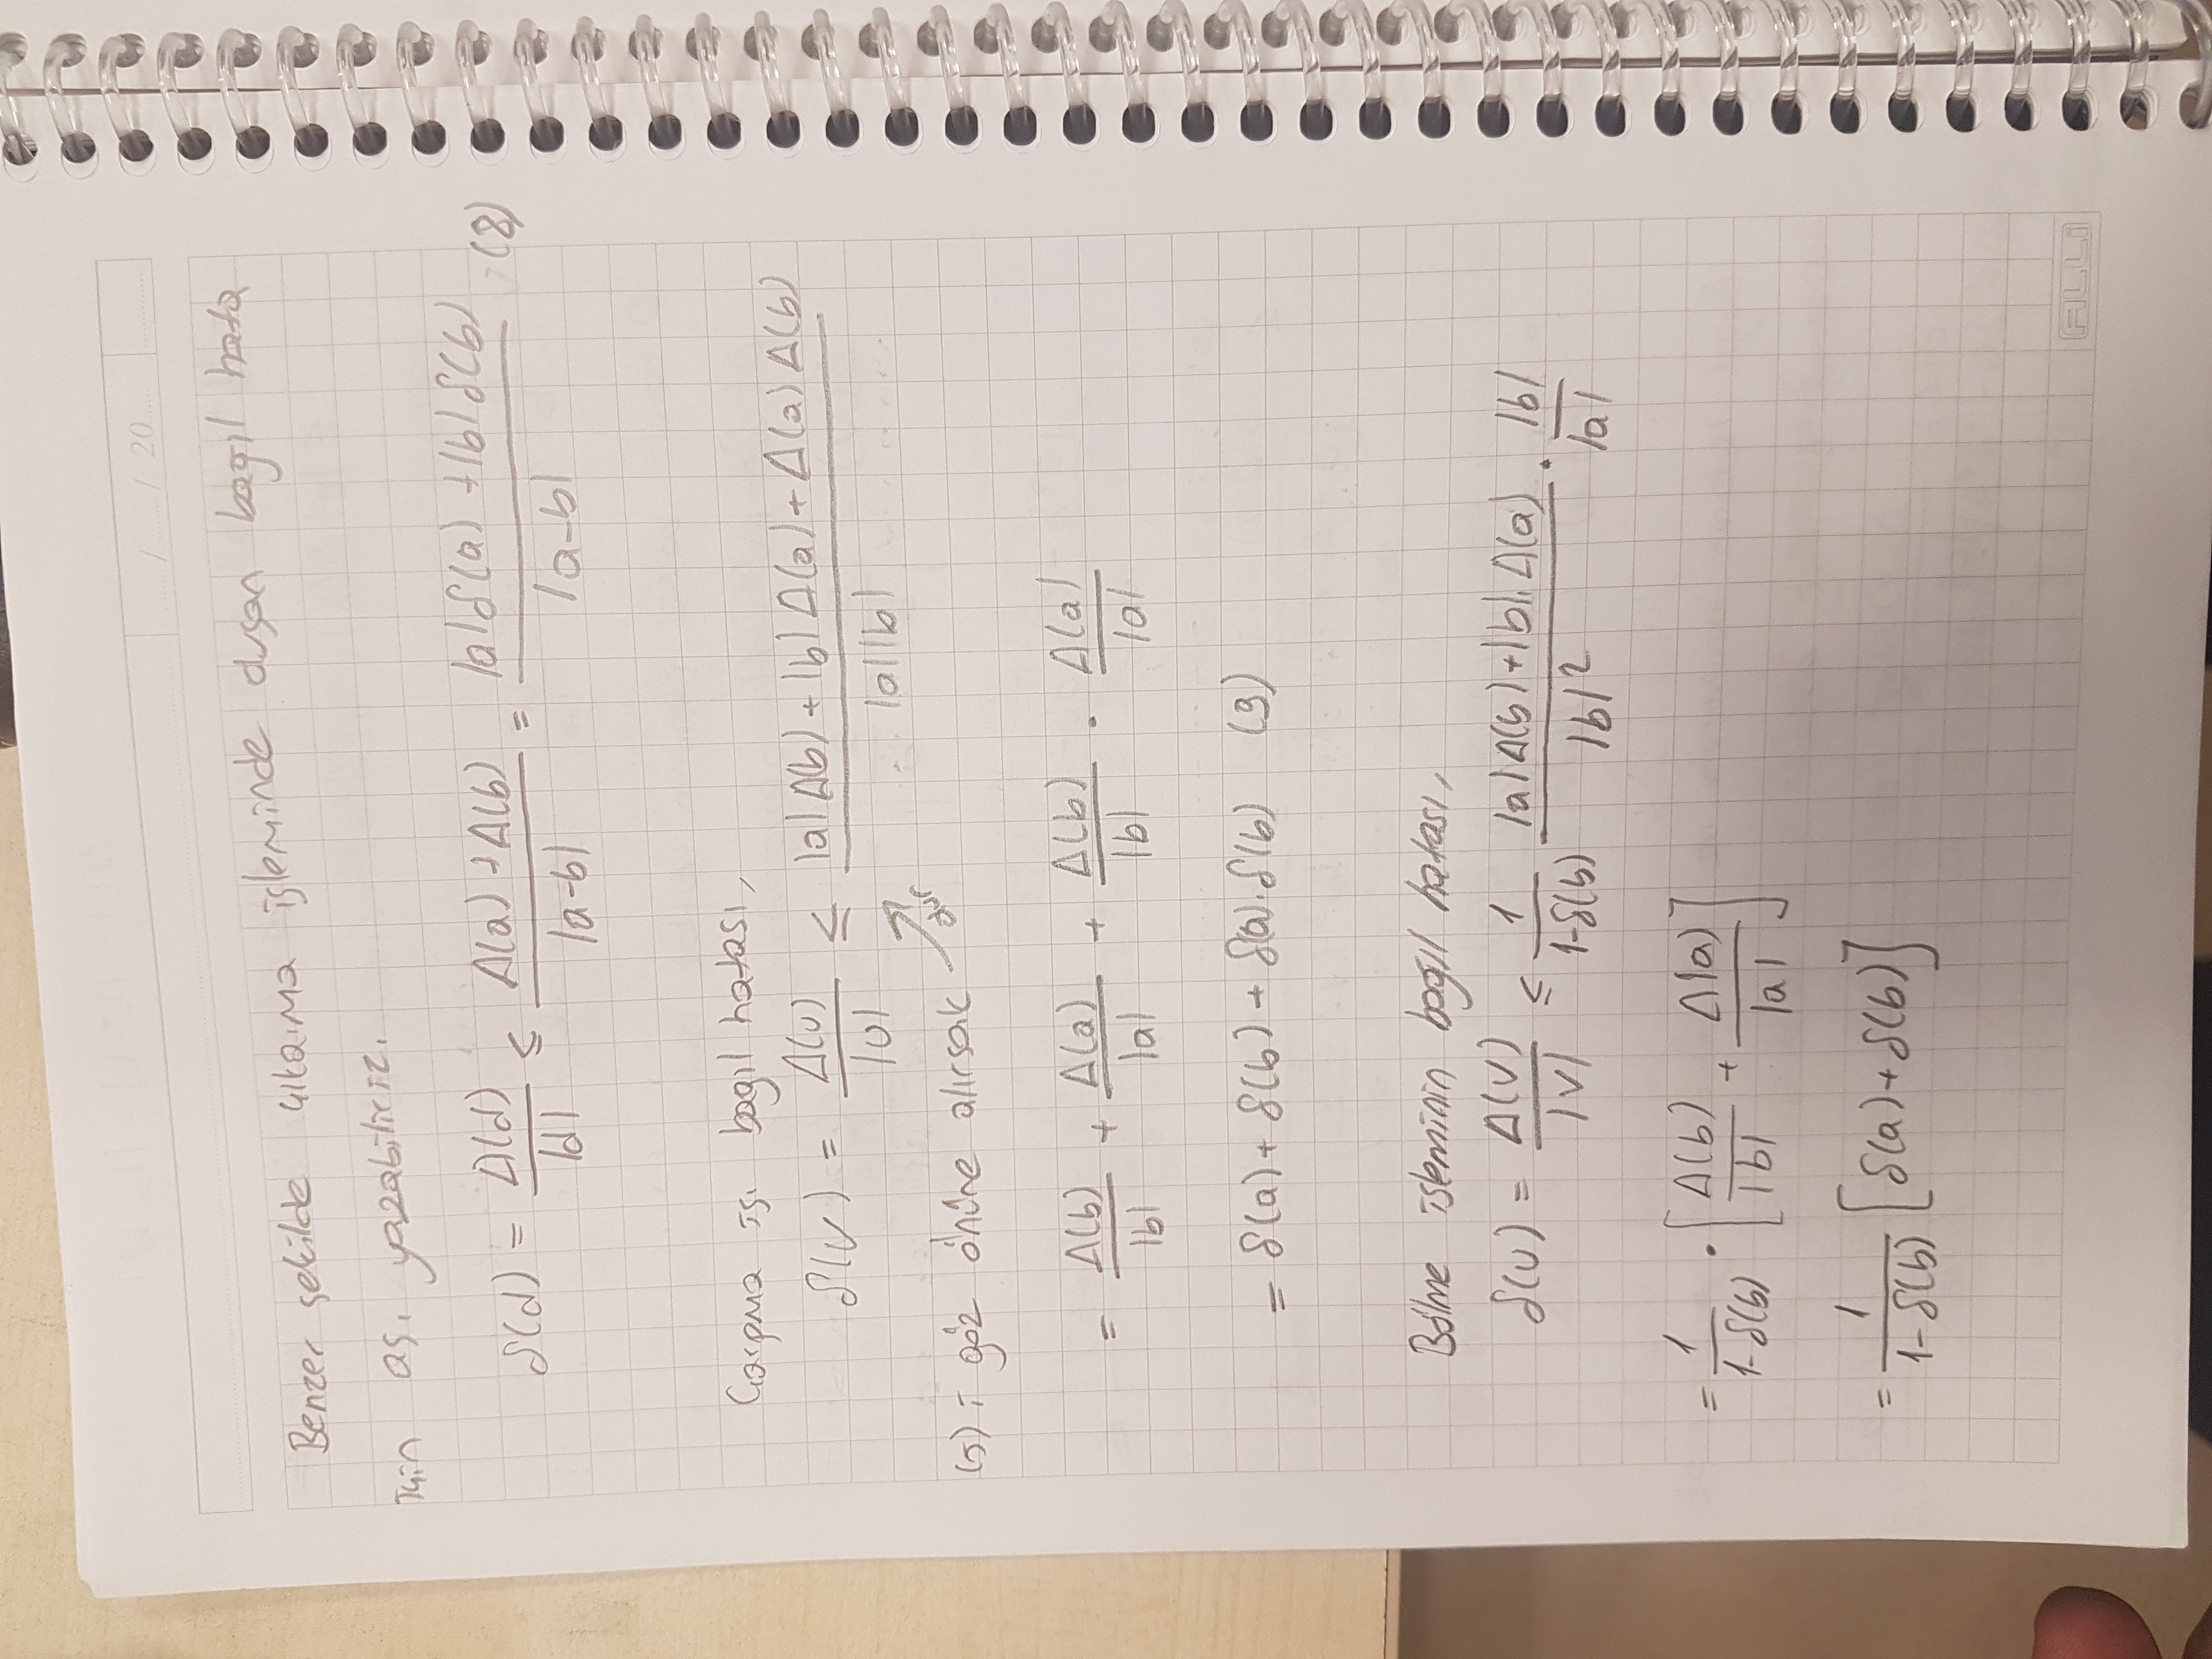 / / 20
Benzer şekilde çıkarma işleminde duşan bagıl hata
için aş. yazabiliriz.
δ(d) = Δ(d)/|d| ≤ (Δ(a)+Δ(b))/|a-b| = (|a|δ(a)+|b|δ(b))/|a-b| (8)
Çarpma iş. bagıl hatası,
δ(v) = Δ(v)/|v| ≤ (|a|Δ(b)+|b|Δ(a)+Δ(a)Δ(b))/(|a||b|)
(5) i göz önüne alırsak → dur
= Δ(b)/|b| + Δ(a)/|a| + Δ(b)/|b| · Δ(a)/|a|
= δ(a)+δ(b)+δ(a).δ(b) (9)
Bölme işleminin bağıl hatası,
δ(v) = Δ(v)/|v| ≤ 1/(1-δ(b)) (|a|Δ(b)+|b|.Δ(a))/|b|² · |b|/|a|
= 1/(1-δ(b)) · [Δ(b)/|b| + Δ(a)/|a|]
= 1/(1-δ(b)) [δ(a)+δ(b)]
ALLi